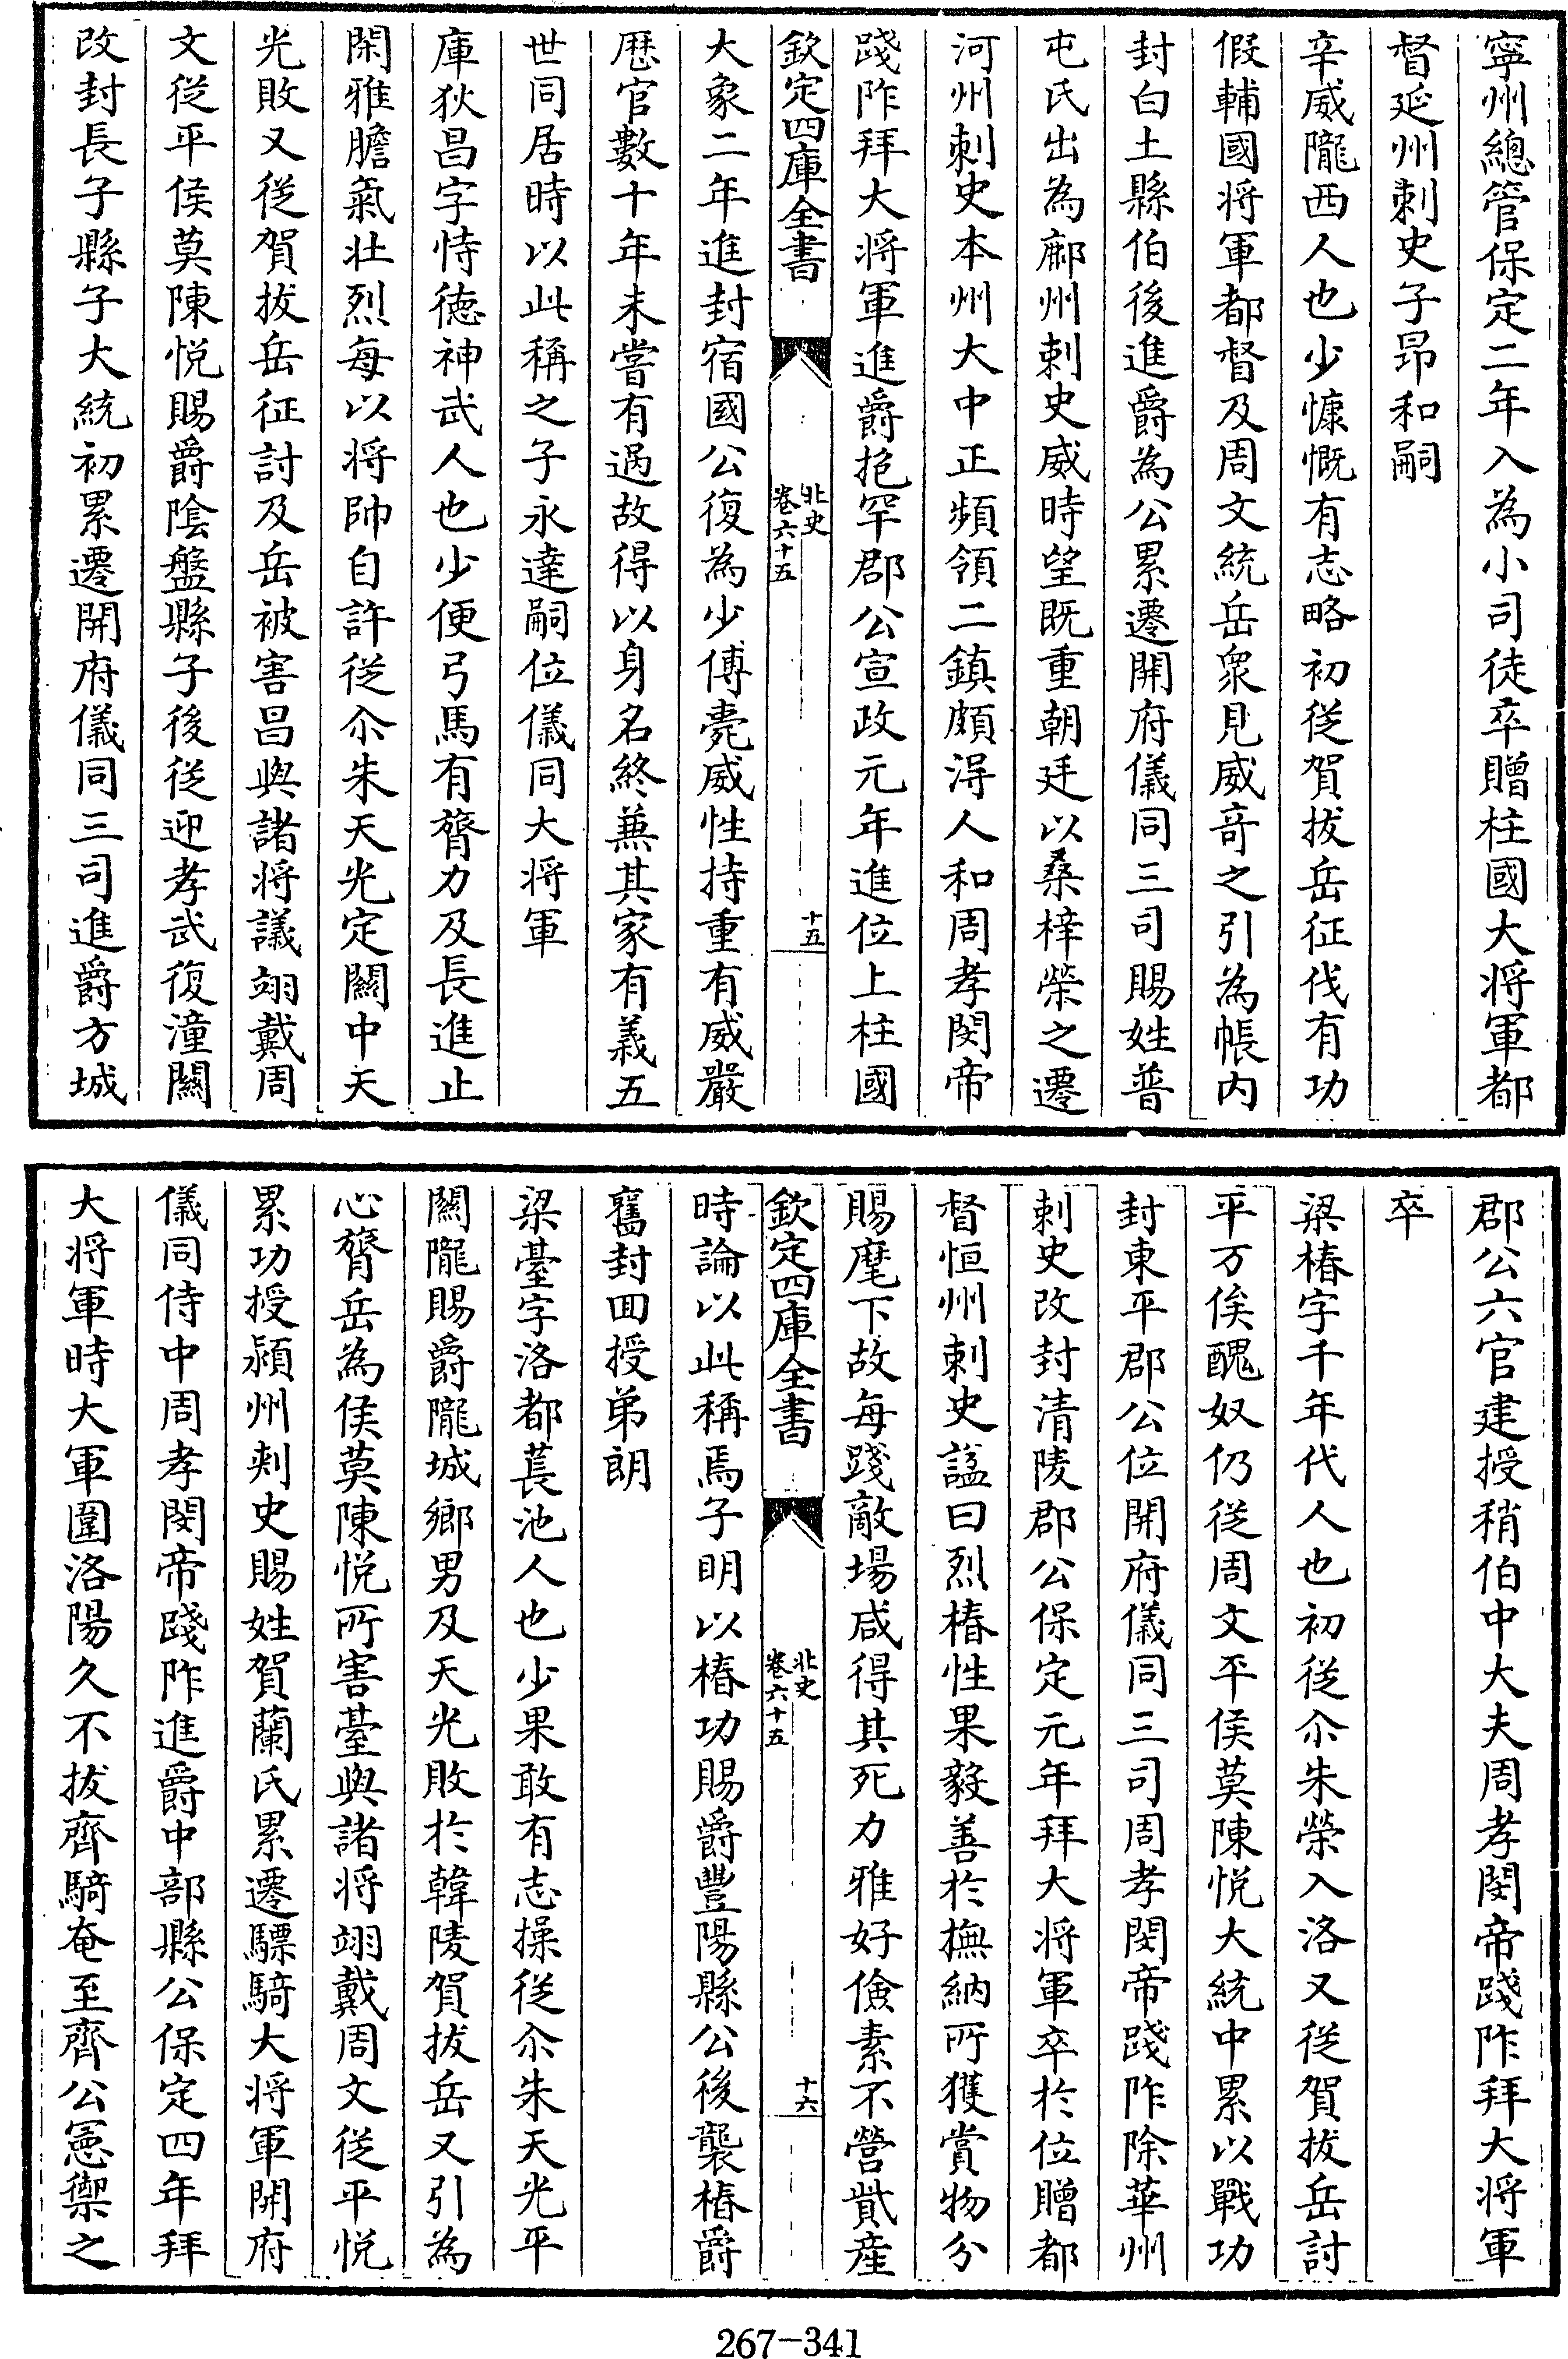 寧州總管保定二年入為小司徒卒贈柱國大将軍都
督延州刺史子昂和嗣
辛威隴西人也少慷慨有志略初從賀拔岳征伐有功
假輔國将軍都督及周文統岳衆見威竒之引為帳内
封白土縣伯後進爵為公累遷開府儀同三司賜姓普
屯氏出為鄜州刺史威時望既重朝廷以桑梓榮之遷
河州刺史本州大中正頻領二鎮頗得人和周孝閔帝
踐阼拜大将軍進爵抱罕郡公宣政元年進位上柱國
欽定四庫全書
北史
卷六十五
十五
大象二年進封宿國公復為少傅薨威性持重有威嚴
歴官數十年未嘗有過故得以身名終兼其家有義五
世同居時以此稱之子永達嗣位儀同大将軍
庫狄昌字恃徳神武人也少便弓馬有膂力及長進止
閑雅膽氣壯烈每以将帥自許從尒朱天光定關中天
光敗又從賀拔岳征討及岳被害昌與諸将議翊戴周
文從平侯莫陳悦賜爵陰盤縣子後從迎孝武復潼關
改封長子縣子大統初累遷開府儀同三司進爵方城
郡公六官建授稍伯中大夫周孝閔帝踐阼拜大将軍
卒
梁椿字千年代人也初從尒朱榮入洛又從賀拔岳討
平万俟醜奴仍從周文平侯莫陳悦大統中累以戰功
封東平郡公位開府儀同三司周孝閔帝踐阼除華州
刺史改封清陵郡公保定元年拜大将軍卒於位贈都
督恒州刺史諡曰烈椿性果毅善於撫納所獲賞物分
賜麾下故每踐敵場咸得其死力雅好儉素不營貲産
欽定四庫全書
北史
卷六十五
十六
時論以此稱焉子明以椿功賜爵豐陽縣公後襲椿爵
舊封回授弟朗
梁臺字洛都萇池人也少果敢有志操從尒朱天光平
關隴賜爵隴城鄉男及天光敗於韓陵賀拔岳又引為
心膂岳為侯莫陳悦所害臺與諸将翊戴周文從平悦
累功授潁州刺史賜姓賀蘭氏累遷驃騎大将軍開府
儀同侍中周孝閔帝踐阼進爵中部縣公保定四年拜
大将軍時大軍圍洛陽久不拔齊騎奄至齊公憲禦之
267-341